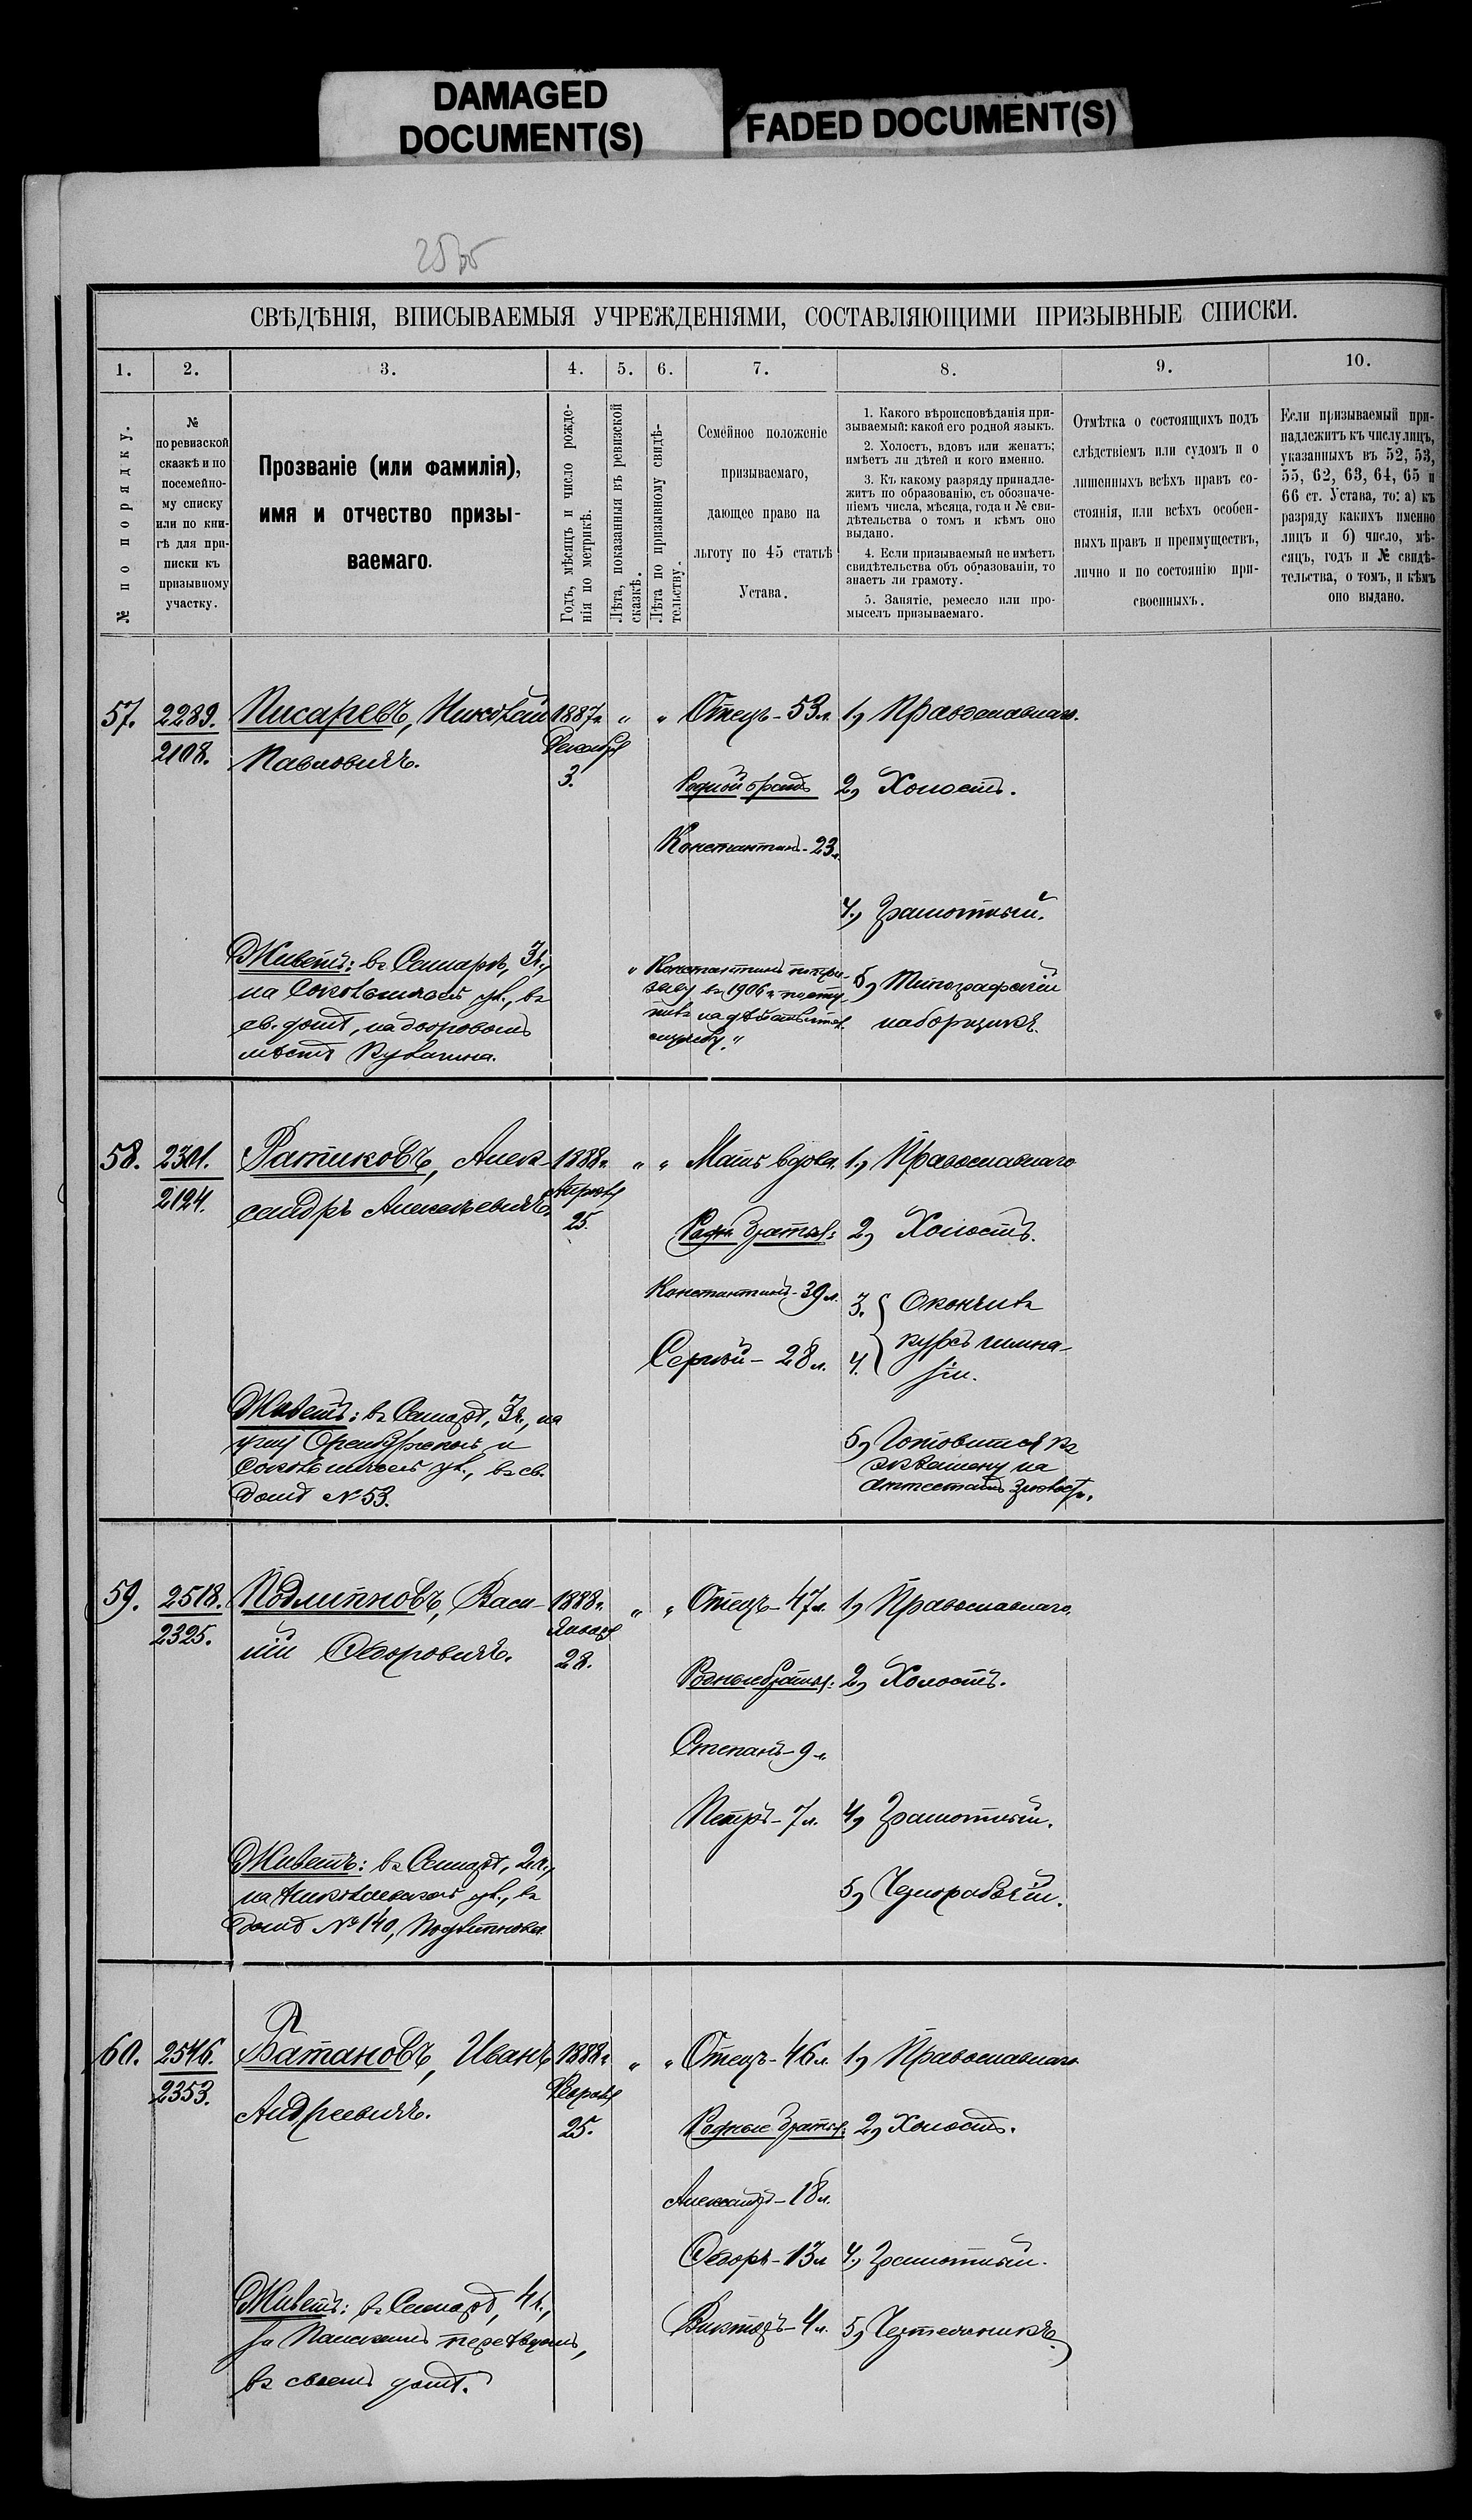 DAMAGED
DOCUMENT(S)
FADED DOCUMENT(S)
СВѢДѢНІЯ, ВПИСЫВАЕМЫЯ УЧРЕЖДЕНІЯМИ, СОСТАВЛЯЮЩИМИ ПРИЗЫВНЫЕ СПИСКИ.
1. 2. 3. 4. 5. 6. 7. 8. 9. 10.
№ по порядку.
№
по ревизской
сказкѣ и по
посемейно-
му списку
или по кни-
гѣ для при-
писки къ
призывному
участку.
Прозваніе (или фамилія),
имя и отчество призы-
ваемаго.
Годъ, мѣсяцъ и число рожде-
нія по метрикѣ.
Лѣта, показанныя въ ревизской
сказкѣ.
Лѣта по призывному свидѣ-
тельству.
Семейное положеніе
призываемаго,
дающее право на
льготу по 45 статьѣ
Устава.
1. Какого вѣроисповѣданія при-
зываемый: какой его родной языкъ.
2. Холостъ, вдовъ или женатъ;
имѣетъ ли дѣтей и кого именно.
3. Къ какому разряду принадле-
житъ по образованію, съ обозначе-
ніемъ числа, мѣсяца, года и № сви-
дѣтельства о томъ и кѣмъ оно
выдано.
4. Если призываемый не имѣетъ
свидѣтельства объ образованіи, то
знаетъ ли грамоту.
5. Занятіе, ремесло или про-
мыселъ призываемаго.
Отмѣтка о состоящихъ подъ
слѣдствіемъ или судомъ и о
лишенныхъ всѣхъ правъ со-
стоянія, или всѣхъ особен-
ныхъ правъ и преимуществъ,
лично и по состоянію при-
своенныхъ.
Если призываемый при-
надлежитъ къ числу лицъ,
указанныхъ въ 52, 53,
55, 62, 63, 64, 65 и
66 ст. Устава, то: а) къ
разряду какихъ именно
лицъ и б) число, мѣ-
сяцъ, годъ и № свидѣ-
тельства, о томъ, и кѣмъ
оно выдано.
57. 2289. Писаревъ, Николай 1887г. " " Отецъ - 53л. 1, Православнаго.
2108. Павловичъ. Декабря
3. Родной братъ 2, Холостъ.
Константинъ - 23л.
4, Грамотный.
Живетъ: въ Самарѣ, 3ч.,
на ул., въ
св. домѣ, на дворовомъ
мѣстѣ
"Константинъ по при-
зыву въ 1906г. посту-
пилъ на дѣйствител.
службу."
5, Типографскій
наборщикъ.
58. 2301. Ратиковъ, Алек- 1888г. " " Мать вдова. 1, Православнаго
2124. сандръ Алексѣевичъ. Апрѣля
25. Родн братья: 2, Холостъ.
Константинъ - 39л. 3. Окончилъ
Сергѣй - 28л. 4. курсъ гимна-
зіи.
Живетъ: въ Самарѣ, 3ч., на
углу Оренбургской и
ул., въ св.
домѣ №53.
5, Готовится къ
экзамену на
аттестатъ зрѣлости.
59. 2518. Подлипновъ, Васи- 1888г. " " Отецъ - 47л. 1, Православнаго.
2325. лій Ѳедоровичъ. Января
28. Родные братья: 2, Холостъ.
Степанъ - 9л.
Петръ - 7л. 4, Грамотный.
Живетъ: въ Самарѣ, 2ч.,
на Николаевской ул., въ
домѣ №140, Подлипнова.
5, Чернорабочій.
60. 2546. Батановъ, Иванъ 1888г. " " Отецъ - 46л. 1, Православнаго
2353. Андреевичъ. Февраля
25. Родные братья: 2, Холостъ.
Александръ - 18л.
Ѳедоръ - 13л 4, Грамотный.
Живетъ: въ Самарѣ, 4ч.,
за Панскимъ переѣздомъ,
въ своемъ домѣ.
Викторъ - 4л. 5, Чертежникъ.